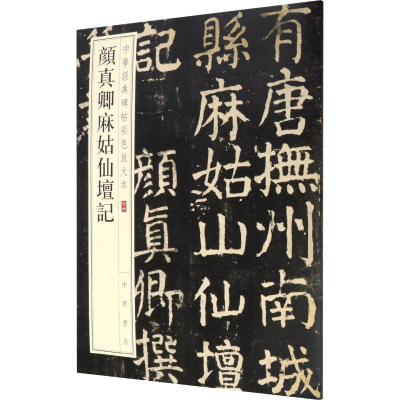 有唐撫州南城
縣麻姑山仙壇
記 顏真卿撰
中華經典碑帖彩色放大本
顏真卿麻姑仙壇記
中華書局